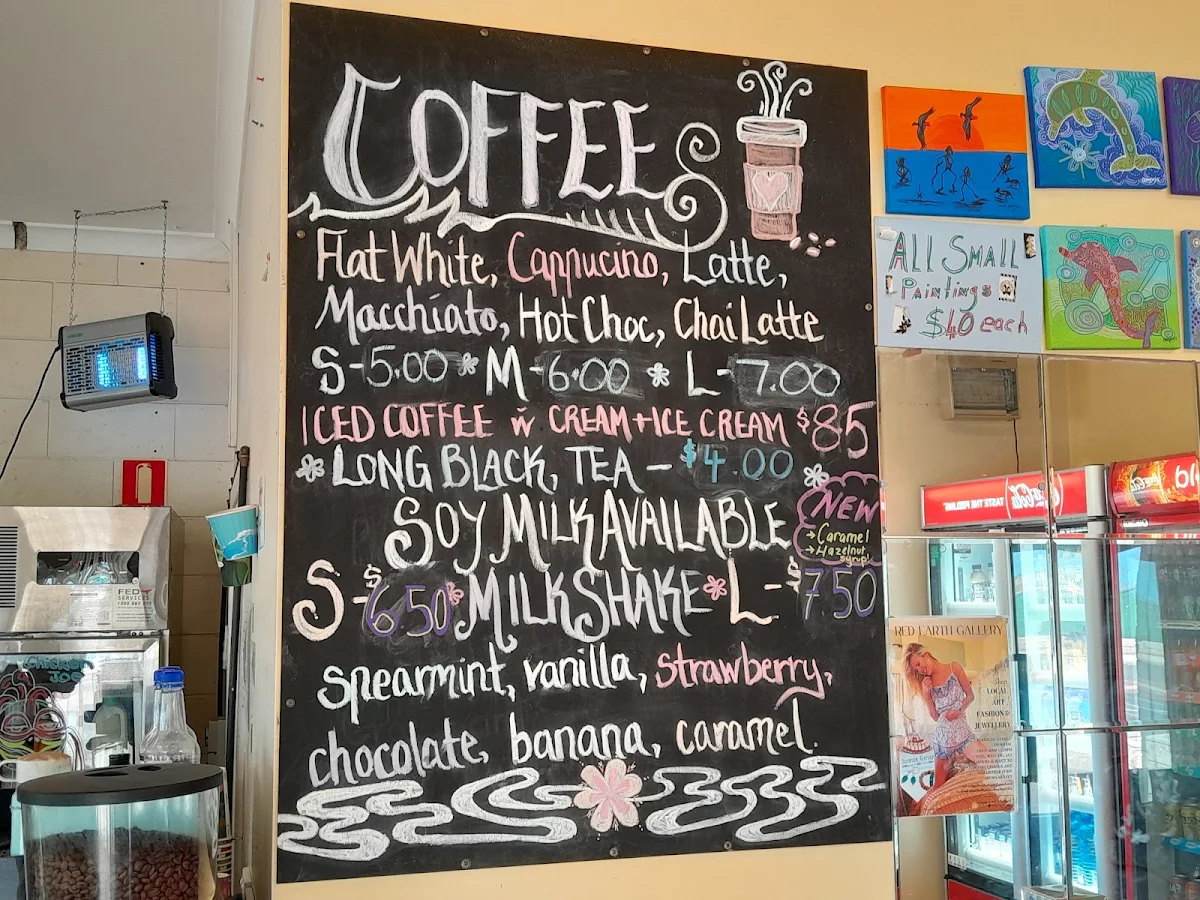 COFFEE
Flat White, Cappucino, Latte,
Macchiato, Hot Choc, Chai Latte
S-5.00 * M-6.00 * L-7.00
ICED COFFEE w CREAM+ICE CREAM $85
* LONG BLACK, TEA - $4.00 *
SOY MILK AVAILABLE
NEW
→Caramel
→Hazelnut
syrup!
S-$6.50 * MILKSHAKE * L-$7.50
spearmint, vanilla, strawberry,
chocolate, banana, caramel.
ALL SMALL
Paintings
$40 each
TASTE THE FEELING
Coca-Cola
RED EARTH GALLERY
Shop
LOCAL
ART,
FASHION &
JEWELLERY
FED
SERVICES
Chicken